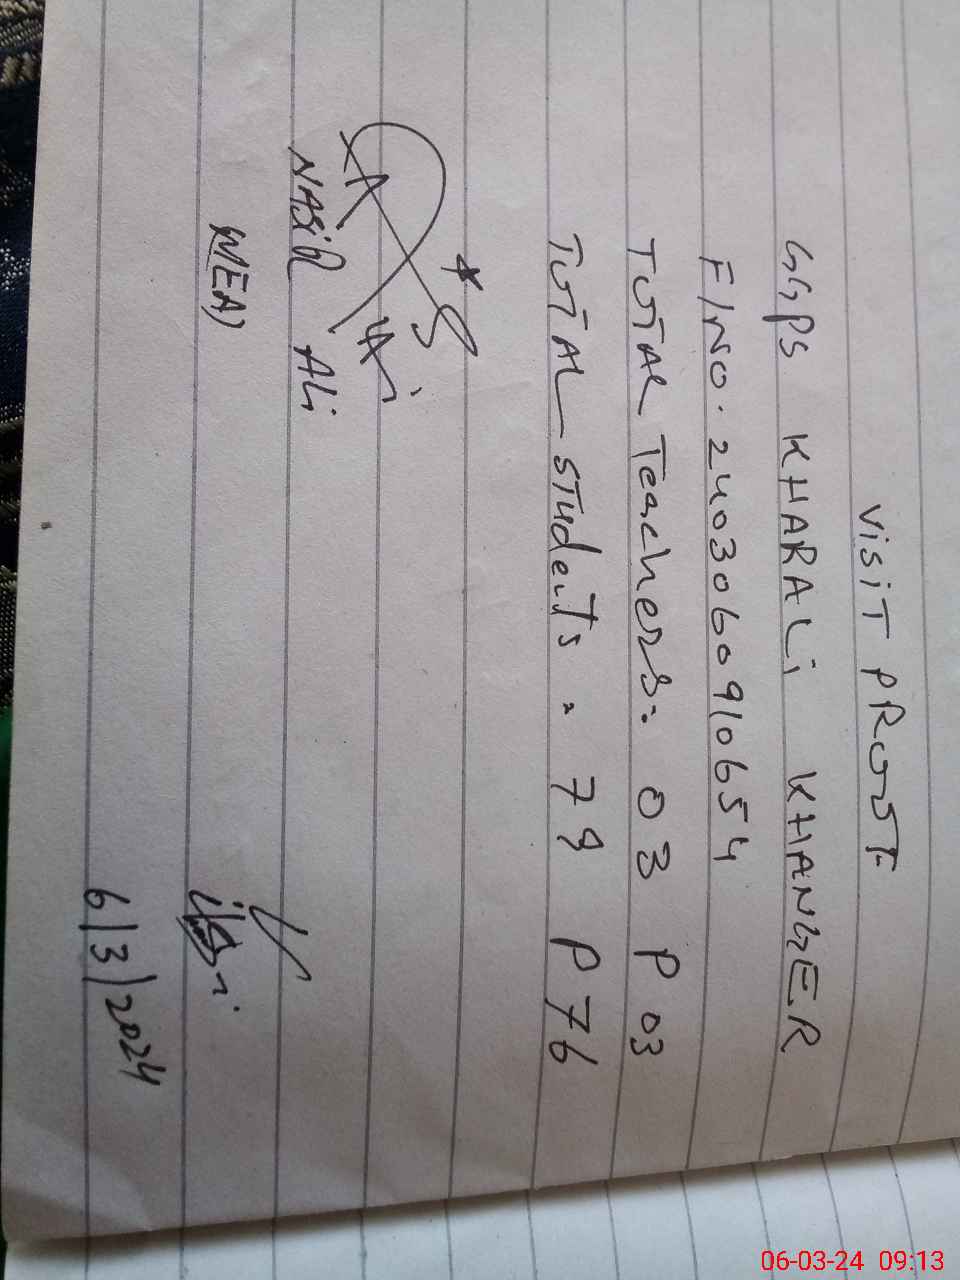 Visit PROOF
GGPS KHARALi KHANGER
F/NO. 2403060910654
TOTAL Teachers: 03 P 03
TOTAL Students. 79 P 76
NASIR Ali
MEA)
6/3/2024
06-03-24 09:13